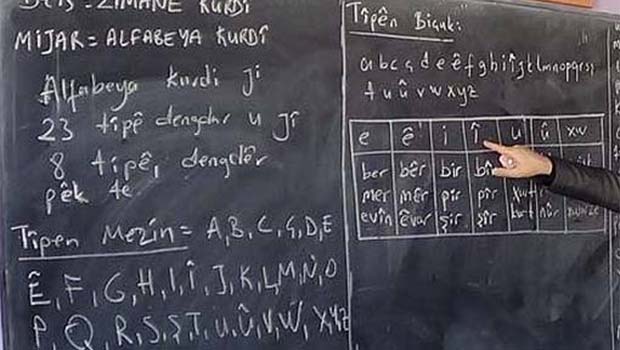 DERS = ZIMANÊ KURDÎ
MIJAR = ALFABEYA KURDÎ
Alfabeya kurdi ji
23 tîpê dengdar u jî
8 tîpê, dengdêr
pêk te
Tîpen Mezin = A, B, C, Ç, D, E
Ê, F, G, H, I, Î, J, K, L, M, N, O
P, Q, R, S, Ş, T, U, Û, V, W, X, Y, Z
Tîpên Biçuk:
a b c ç d e ê f g h i î j k l m n o p q r s ş
t u û v w x y z
e ê i î u û xw
ber bêr bir
mer mêr pir pîr
evîn êvar şir şîr kurt nûr